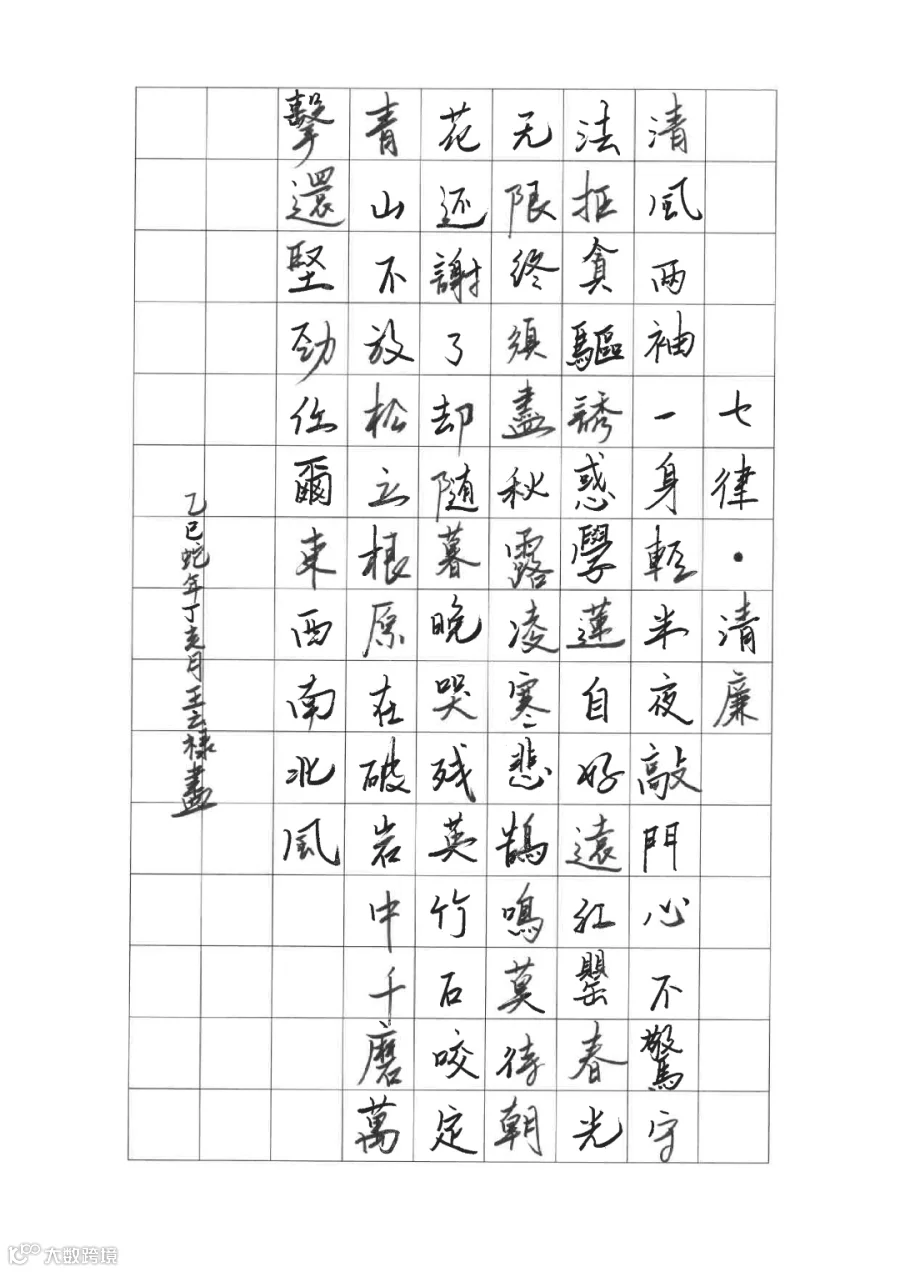 七律·清廉
清風兩袖一身輕半夜敲門心不驚守
法拒貪驅誘惑學蓮自好遠紅罌春光
无限終須盡秋露凌寒悲鵲鳴莫待朝
花还謝了却随暮晚哭残英竹石咬定
青山不放松立根原在破岩中千磨萬
擊還堅劲任爾東西南北风
乙巳蛇年丁亥月王云禄書
大数跨境